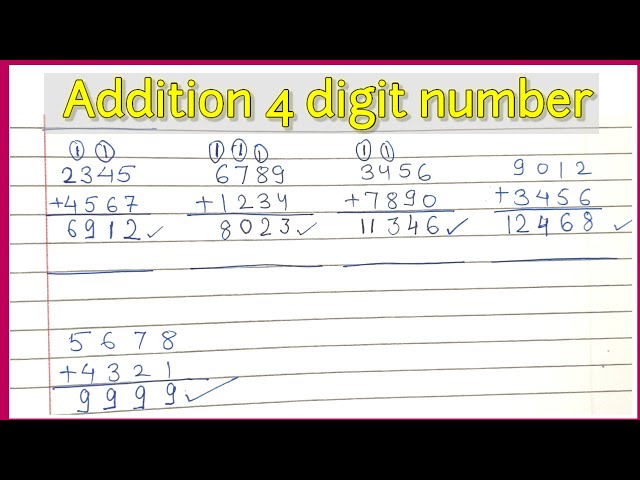 Addition 4 digit number
1 1 1 1 1 1 1
2345 6789 3456 9012
+4567 +1234 +7890 +3456
6912 ✓ 8023 ✓ 11346 ✓ 12468 ✓
5678
+4321
9999 ✓